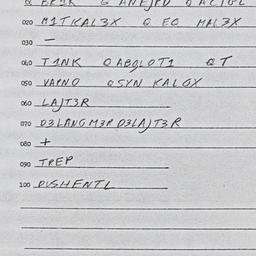 020 M1TKAL3X O EO MAL3X
030 —
040 T1NK O ABOLOT1 O T
050 VARNO O SYN KALOX
060 LAJT3R
070 D3LANGM3R D3LAJT3R
080 +
090 TREP
100 DISHENTL